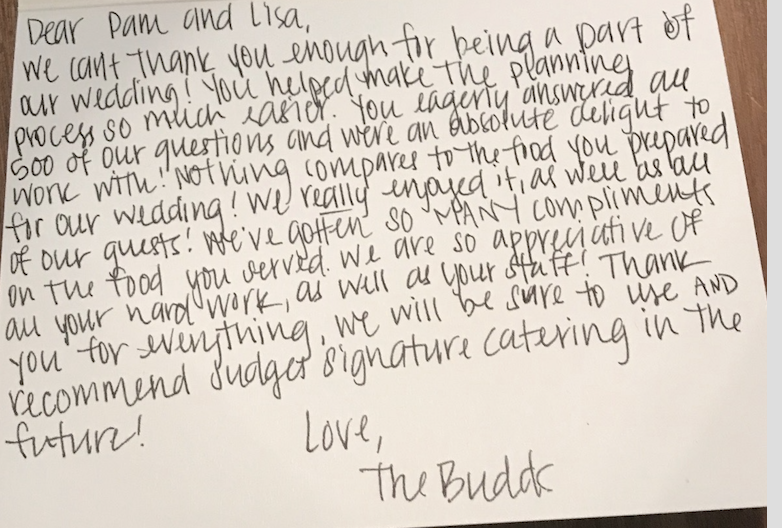 Dear Pam and Lisa,
We can't thank you enough for being a part of
our wedding! You helped make the planning
process so much easier. You eagerly answered all
500 of our questions and were an absolute delight to
work with! Nothing compares to the food you prepared
for our wedding! We really enjoyed it, as well as all
of our guests! We've gotten so MANY compliments
on the food you served. We are so appreciative of
all your hard work, as well as your staff! Thank
you for everything, we will be sure to use AND
recommend Judges Signature catering in the
future!
Love,
The Budds